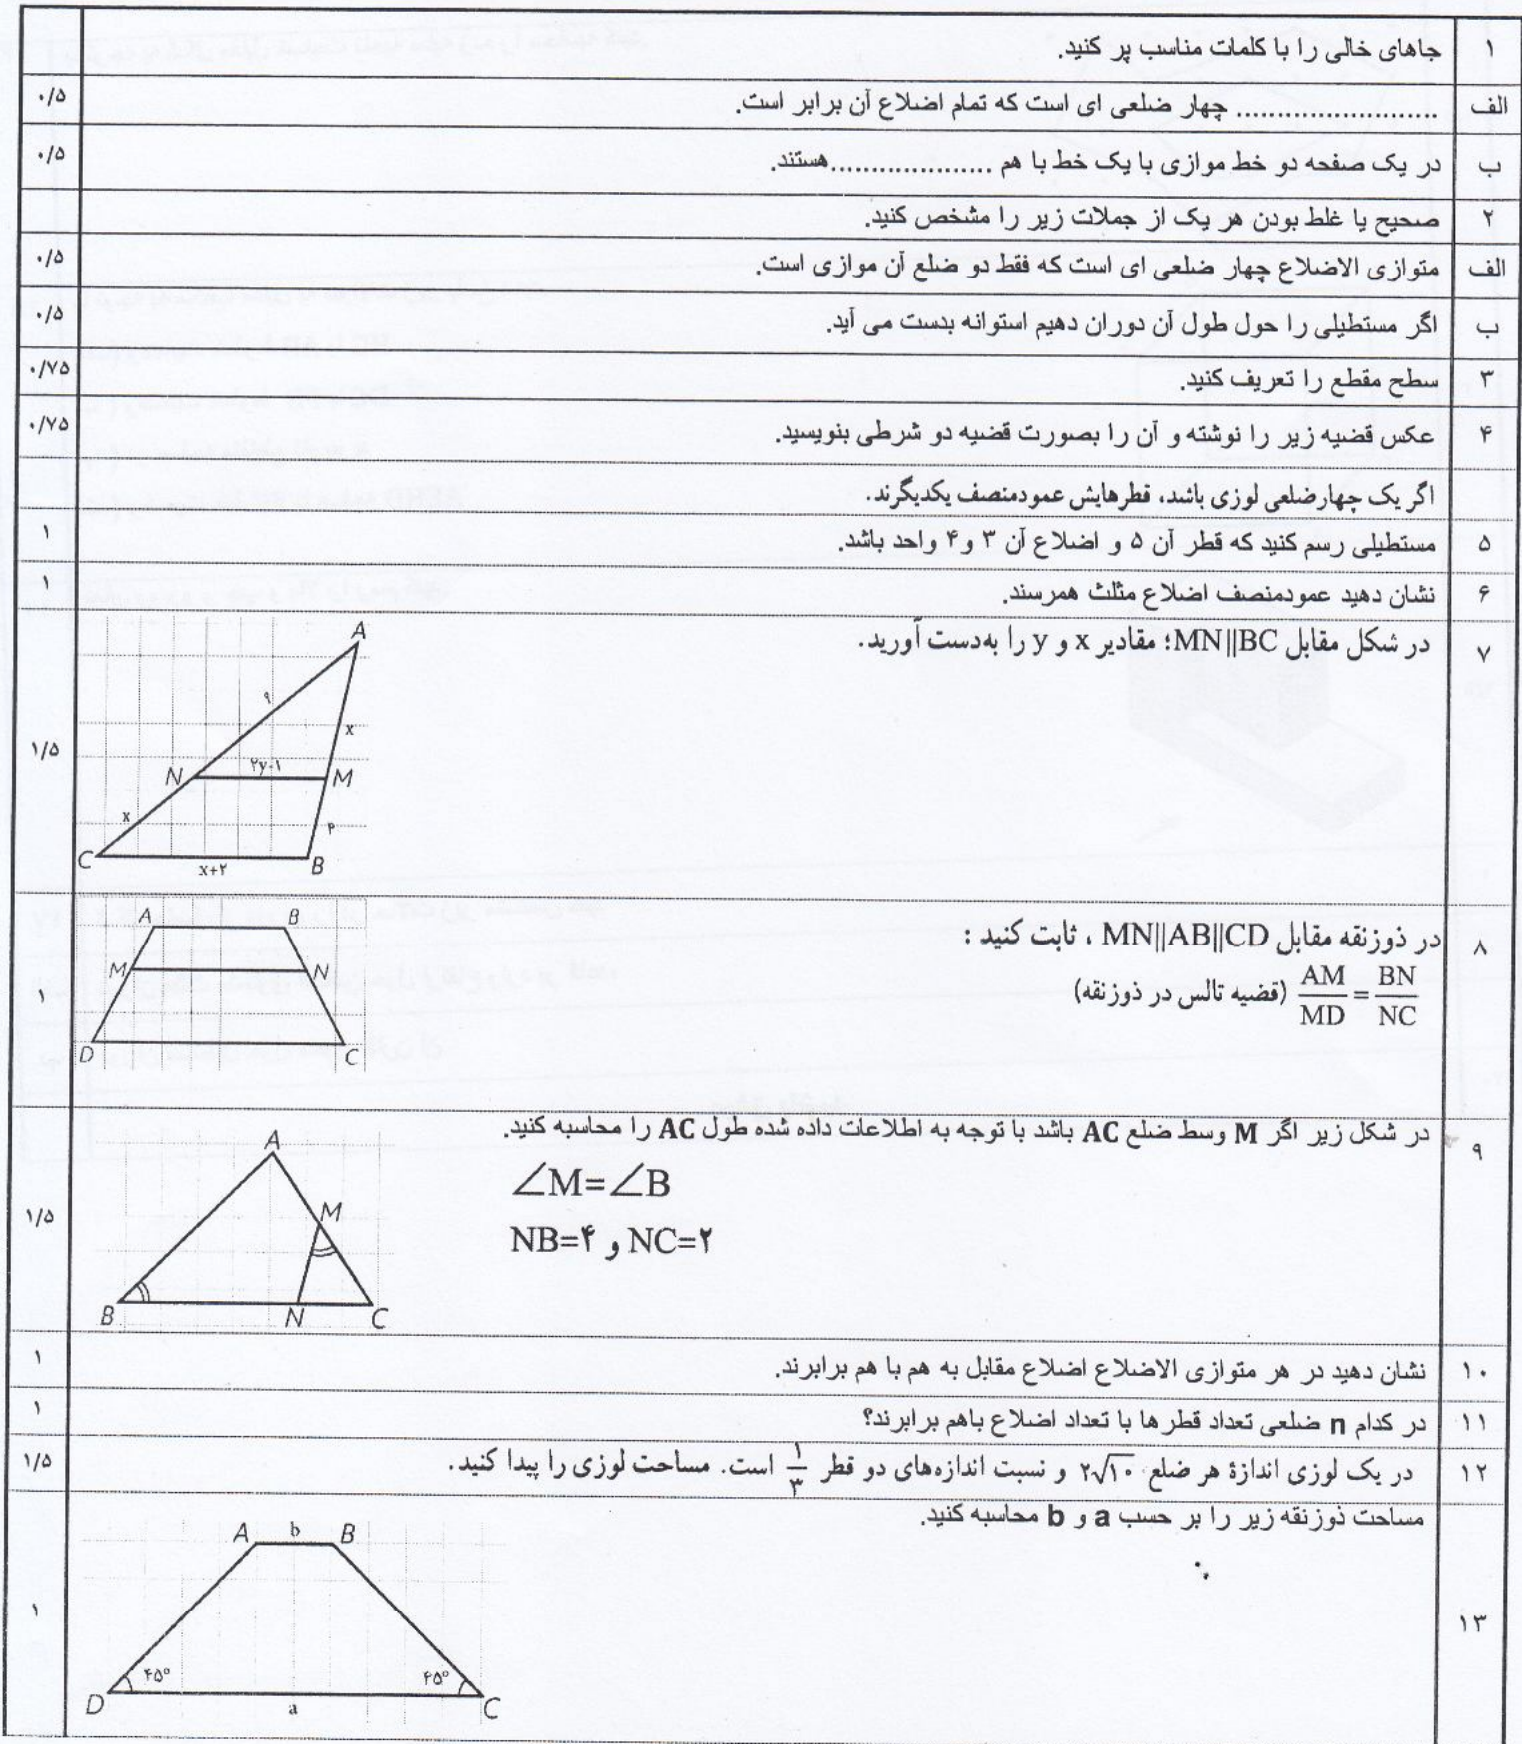 ۱ جاهای خالی را با کلمات مناسب پر کنید.
الف ......................... چهار ضلعی ای است که تمام اضلاع آن برابر است. ۰/۵
ب در یک صفحه دو خط موازی با یک خط با هم ....................هستند. ۰/۵
۲ صحیح یا غلط بودن هر یک از جملات زیر را مشخص کنید.
الف متوازی الاضلاع چهار ضلعی ای است که فقط دو ضلع آن موازی است. ۰/۵
ب اگر مستطیلی را حول طول آن دوران دهیم استوانه بدست می آید. ۰/۵
۳ سطح مقطع را تعریف کنید. ۰/۷۵
۴ عکس قضیه زیر را نوشته و آن را بصورت قضیه دو شرطی بنویسید. ۰/۷۵
اگر یک چهارضلعی لوزی باشد، قطرهایش عمودمنصف یکدیگرند.
۵ مستطیلی رسم کنید که قطر آن ۵ و اضلاع آن ۳ و ۴ واحد باشد. ۱
۶ نشان دهید عمودمنصف اضلاع مثلث همرسند. ۱
۷ در شکل مقابل MN||BC؛ مقادیر x و y را به‌دست آورید. ۱/۵
A
۹
x
N ۲y-۱ M
x ۴
C x+۲ B
۸ در ذوزنقه مقابل MN||AB||CD ، ثابت کنید : ۱
AM/MD = BN/NC (قضیه تالس در ذوزنقه)
A B
M N
D C
۹ در شکل زیر اگر M وسط ضلع AC باشد با توجه به اطلاعات داده شده طول AC را محاسبه کنید. ۱/۵
∠M=∠B
NB=۴ و NC=۲
A
M
B N C
۱۰ نشان دهید در هر متوازی الاضلاع اضلاع مقابل به هم با هم برابرند. ۱
۱۱ در کدام n ضلعی تعداد قطر ها با تعداد اضلاع باهم برابرند؟ ۱
۱۲ در یک لوزی اندازهٔ هر ضلع ۲√۱۰ و نسبت اندازه‌های دو قطر ۱/۳ است. مساحت لوزی را پیدا کنید. ۱/۵
۱۳ مساحت ذوزنقه زیر را بر حسب a و b محاسبه کنید. ۱
A b B
۴۵° ۴۵°
D a C